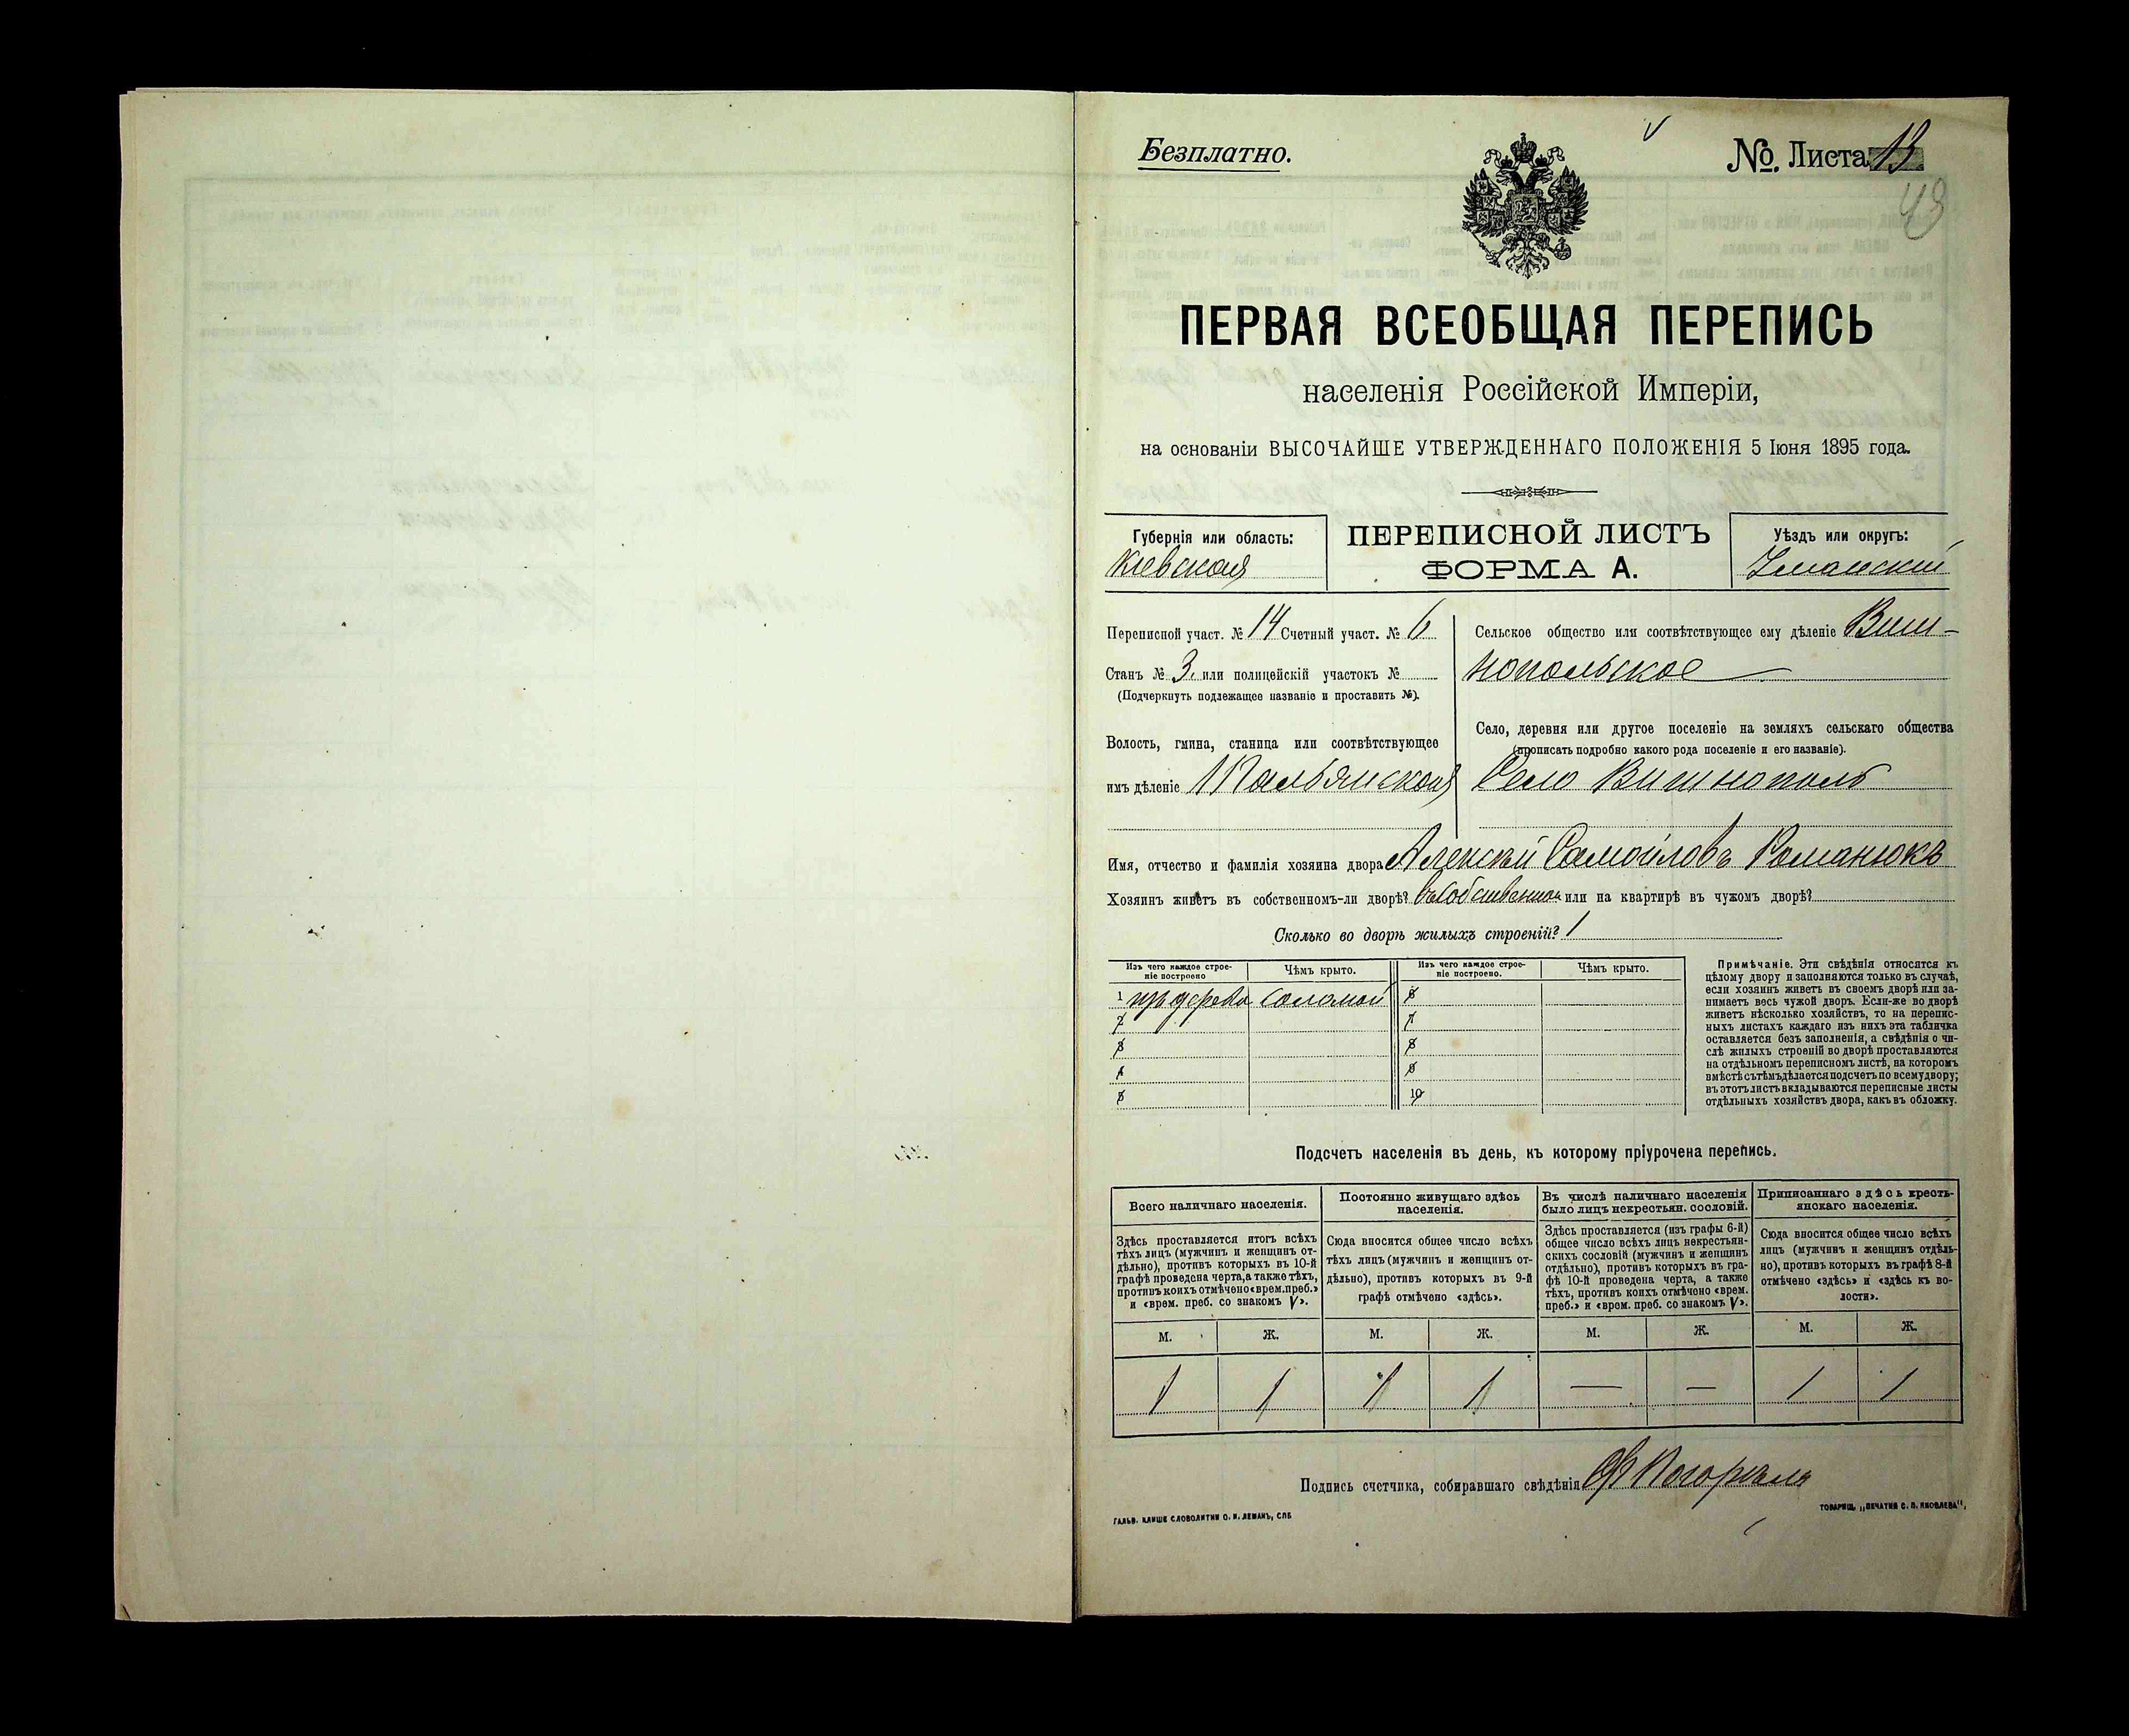 Безплатно.
№ Листа 13
43
ПЕРВАЯ ВСЕОБЩАЯ ПЕРЕПИСЬ
населенія Россійской Имперіи,
на основаніи ВЫСОЧАЙШЕ УТВЕРЖДЕННАГО ПОЛОЖЕНІЯ 5 Іюня 1895 года.
Губернія или область:
Кіевская
ПЕРЕПИСНОЙ ЛИСТЪ
ФОРМА А.
Уѣздъ или округъ:
Уманскій
Переписной участ. № 14 Счетный участ. № 6
Станъ № 3. или полицейскій участокъ №
(Подчеркнуть подлежащее названіе и проставить №).
Волость, гмина, станица или соотвѣтствующее
имъ дѣленіе Тальянская
Сельское общество или соотвѣтствующее ему дѣленіе Виш-
нопольское
Село, деревня или другое поселеніе на земляхъ сельскаго общества
(прописать подробно какого рода поселеніе и его названіе).
Село Вишнополь
Имя, отчество и фамилія хозяина двора Алексѣй Самойловъ Романюкъ
Хозяинъ живетъ въ собственномъ-ли дворѣ? въ собственномъ или на квартирѣ въ чужомъ дворѣ?
Сколько во дворѣ жилыхъ строеній? 1
Изъ чего каждое строе-
ніе построено
Чѣмъ крыто.
Изъ чего каждое строе-
ніе построено.
Чѣмъ крыто.
1 изъ дерева соломой 6
2 7
3 8
4 9
5 10
Примѣчаніе. Эти свѣдѣнія относятся къ
цѣлому двору и заполняются только въ случаѣ,
если хозяинъ живетъ въ своемъ дворѣ или за-
нимаетъ весь чужой дворъ. Если-же во дворѣ
живетъ нѣсколько хозяйствъ, то на перепис-
ныхъ листахъ каждаго изъ нихъ эта табличка
оставляется безъ заполненія, а свѣдѣнія о чи-
слѣ жилыхъ строеній во дворѣ проставляются
на отдѣльномъ переписномъ листѣ, на которомъ
вмѣстѣ съ тѣмъ дѣлается подсчетъ по всему двору;
въ этотъ листъ вкладываются переписные листы
отдѣльныхъ хозяйствъ двора, какъ въ обложку.
Подсчетъ населенія въ день, къ которому пріурочена перепись.
Всего наличнаго населенія.
Здѣсь проставляется итогъ всѣхъ
тѣхъ лицъ (мужчинъ и женщинъ от-
дѣльно), противъ которыхъ въ 10-й
графѣ проведена черта, а также тѣхъ,
противъ коихъ отмѣчено «врем. преб.»
и «врем. преб. со знакомъ V».
Постоянно живущаго здѣсь
населенія.
Сюда вносится общее число всѣхъ
тѣхъ лицъ (мужчинъ и женщинъ от-
дѣльно), противъ которыхъ въ 9-й
графѣ отмѣчено «здѣсь».
Въ числѣ наличнаго населенія
было лицъ некрестьян. сословій.
Здѣсь проставляется (изъ графы 6-й)
общее число всѣхъ лицъ некрестьян-
скихъ сословій (мужчинъ и женщинъ
отдѣльно), противъ которыхъ въ гра-
фѣ 10-й проведена черта, а также
тѣхъ, противъ коихъ отмѣчено «врем.
преб.» и «врем. преб. со знакомъ V».
Приписаннаго здѣсь кресть-
янскаго населенія.
Сюда вносится общее число всѣхъ
лицъ (мужчинъ и женщинъ отдѣль-
но), противъ которыхъ въ графѣ 8-й
отмѣчено «здѣсь» и «здѣсь къ во-
лости».
М. Ж. М. Ж. М. Ж. М. Ж.
1 1 1 1 — — 1 1
Подпись счетчика, собиравшаго свѣдѣнія
ГАЛЬВ. КЛИШЕ СЛОВОЛИТНИ О. И. ЛЕМАНЪ, СПБ
ТОВАРИЩ. „ПЕЧАТНЯ С. П. ЯКОВЛЕВА",